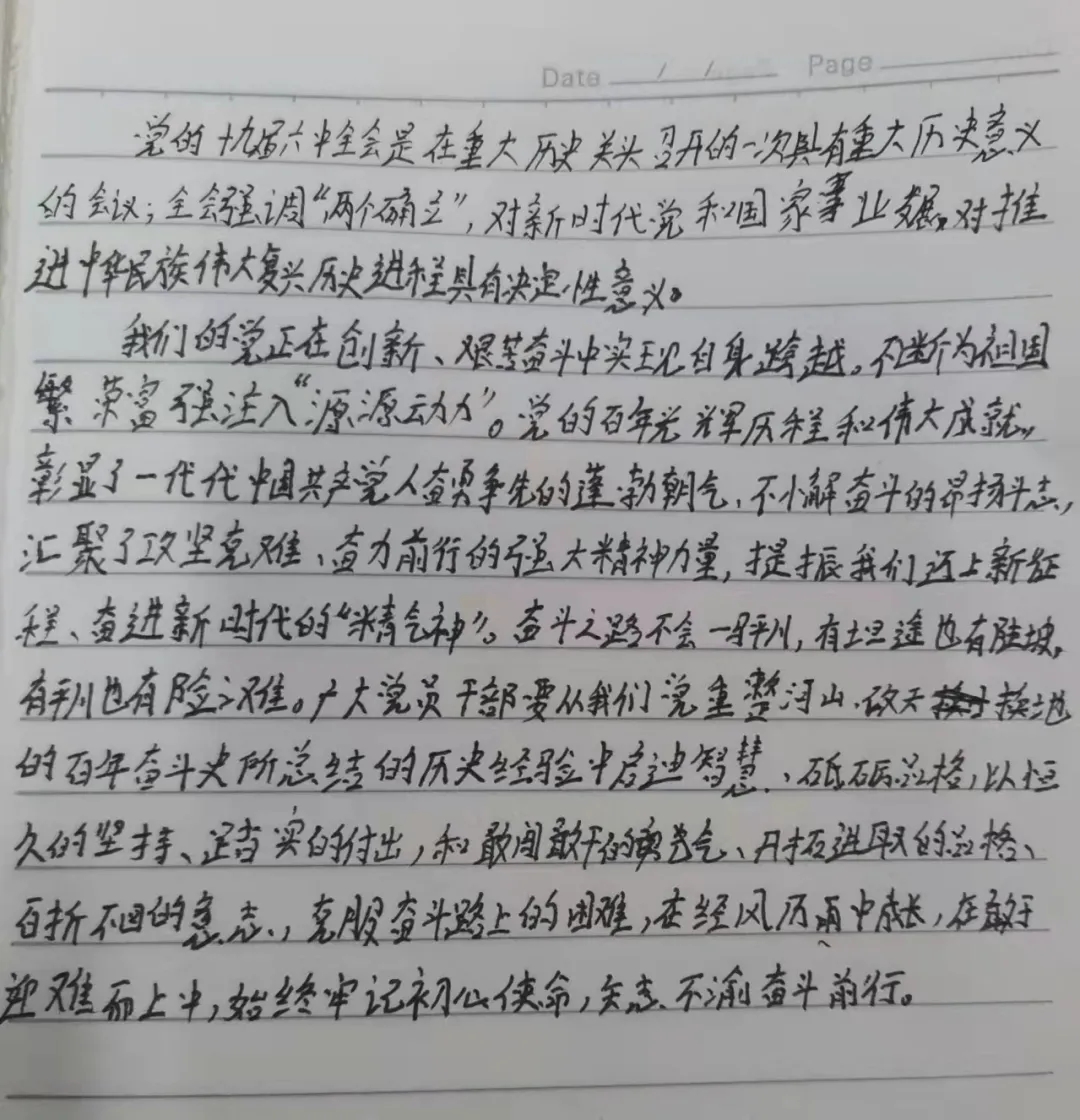 Date / / Page
党的十九届六中全会是在重大历史关头召开的一次具有重大历史意义
的会议;全会强调“两个确立”,对新时代党和国家事业发展,对推
进中华民族伟大复兴历史进程具有决定性意义。
我们的党正在创新、艰苦奋斗中实现自身跨越。不断为祖国
繁荣富强注入“源源动力”。党的百年光辉历程和伟大成就,
彰显了一代代中国共产党人奋勇争先的蓬勃朝气、不懈奋斗的昂扬斗志,
汇聚了攻坚克难、奋力前行的强大精神力量,提振我们迈上新征
程、奋进新时代的“精气神”。奋斗之路不会一马平川,有坦途也有陡坡,
有平川也有险滩。广大党员干部要从我们党重整河山、改天换地
的百年奋斗史所总结的历史经验中启迪智慧、砥砺品格,以恒
久的坚持、踏实的付出,和敢闯敢干的勇气、开拓进取的品格、
百折不回的意志,克服奋斗路上的困难,在经风历雨中成长,在敢于
迎难而上中,始终牢记初心使命,矢志不渝奋斗前行。